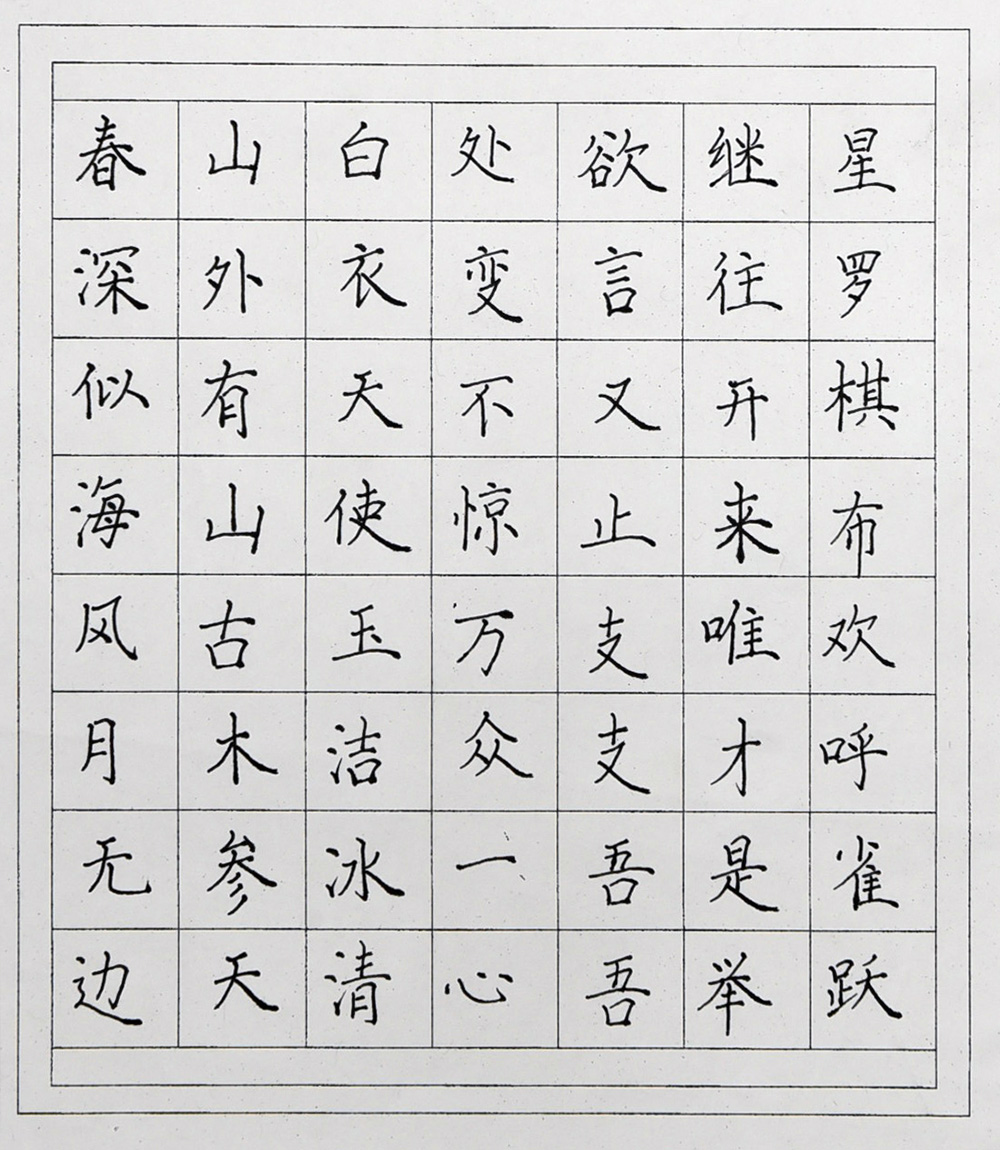 星罗棋布欢呼雀跃
继往开来唯才是举
欲言又止支支吾吾
处变不惊万众一心
白衣天使玉洁冰清
山外有山古木参天
春深似海风月无边